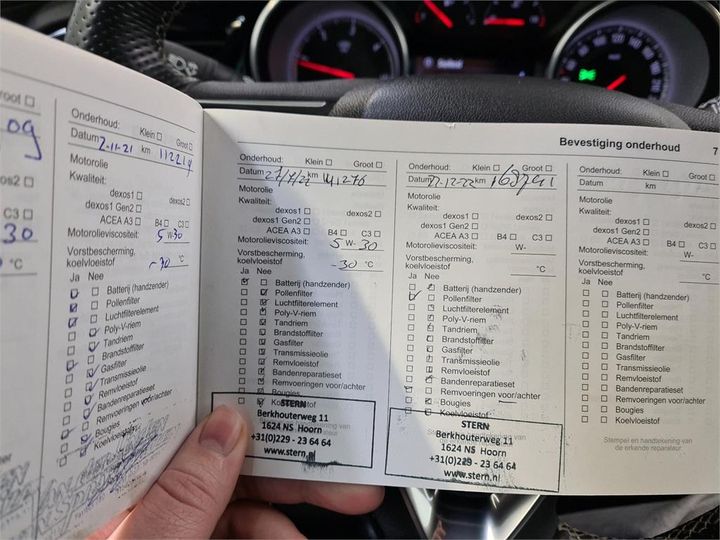 Bevestiging onderhoud 7
Groot
og
dexos2
C3
30
°C
Onderhoud: Klein Groot
Datum 2-11-21 km 112214
Motorolie
Kwaliteit:
dexos1 dexos2
dexos1 Gen2
ACEA A3 B4 C3
Motorolieviscositeit: 5 W-30
Vorstbescherming,
koelvloeistof -30 °C
Ja Nee
Batterij (handzender)
Pollenfilter
Luchtfilterelement
Poly-V-riem
Tandriem
Brandstoffilter
Gasfilter
Transmissieolie
Remvloeistof
Bandenreparatieset
Remvoeringen voor/achter
Bougies
Koelvloeistof
Onderhoud: Klein Groot
Datum 27/7/22 km 141276
Motorolie
Kwaliteit:
dexos1 dexos2
dexos1 Gen2
ACEA A3 B4 C3
Motorolieviscositeit: 5 W-30
Vorstbescherming,
koelvloeistof -30 °C
Ja Nee
Batterij (handzender)
Pollenfilter
Luchtfilterelement
Poly-V-riem
Tandriem
Brandstoffilter
Gasfilter
Transmissieolie
Remvloeistof
Bandenreparatieset
Remvoeringen voor/achter
Bougies
Koelvloeistof
STERN
Berkhouterweg 11
1624 NS Hoorn
+31(0)229 - 23 64 64
www.stern.nl
Onderhoud: Klein Groot
Datum 22-12-22 km
Motorolie
Kwaliteit:
dexos1 dexos2
dexos1 Gen2
ACEA A3 B4 C3
Motorolieviscositeit: W-
Vorstbescherming,
koelvloeistof °C
Ja Nee
Batterij (handzender)
Pollenfilter
Luchtfilterelement
Poly-V-riem
Tandriem
Brandstoffilter
Gasfilter
Transmissieolie
Remvloeistof
Bandenreparatieset
Remvoeringen voor/achter
Bougies
Koelvloeistof
STERN
Berkhouterweg 11
1624 NS Hoorn
+31(0)229 - 23 64 64
www.stern.nl
Onderhoud: Klein Groot
Datum km
Motorolie
Kwaliteit:
dexos1 dexos2
dexos1 Gen2
ACEA A3 B4 C3
Motorolieviscositeit: W-
Vorstbescherming,
koelvloeistof °C
Ja Nee
Batterij (handzender)
Pollenfilter
Luchtfilterelement
Poly-V-riem
Tandriem
Brandstoffilter
Gasfilter
Transmissieolie
Remvloeistof
Bandenreparatieset
Remvoeringen voor/achter
Bougies
Koelvloeistof
Stempel en handtekening van
de erkende reparateur.